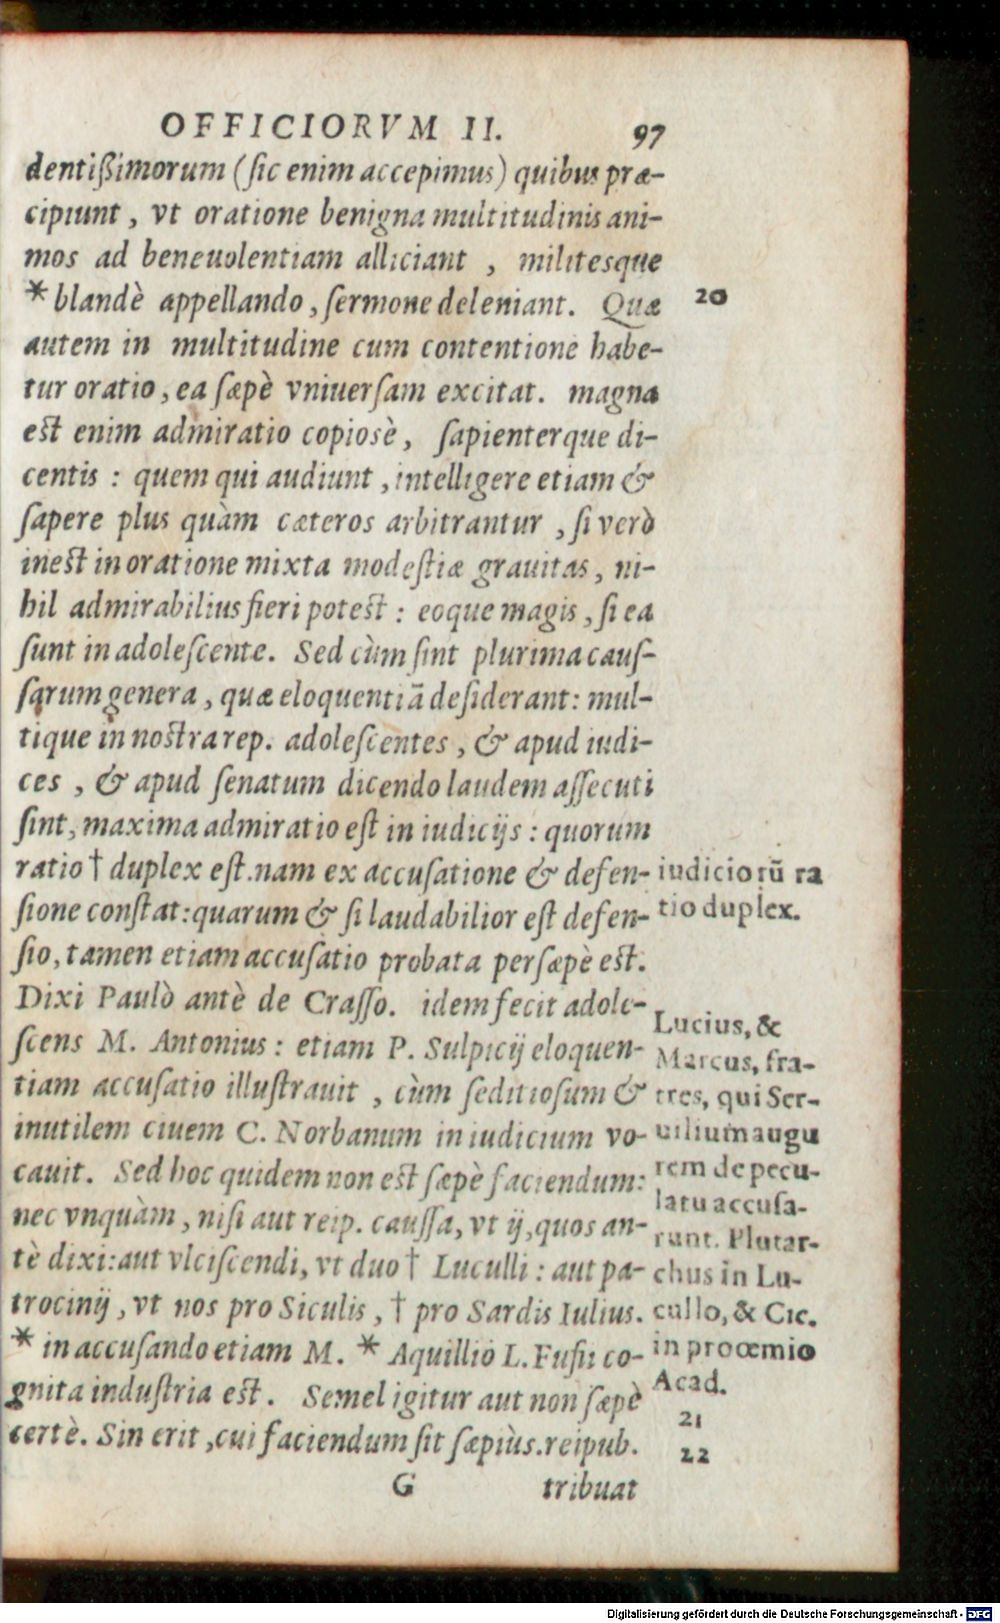 OFFICIORVM II. 97
dentißimorum (sic enim accepimus) quibus præ-
cipiunt, vt oratione benigna multitudinis ani-
mos ad beneuolentiam alliciant, militesque
* blandè appellando, sermone deleniant. Quæ
20
autem in multitudine cum contentione habe-
tur oratio, ea sæpè vniuersam excitat. magna
est enim admiratio copiosè, sapienterque di-
centis: quem qui audiunt, intelligere etiam &
sapere plus quàm cæteros arbitrantur, si verò
inest in oratione mixta modestiæ grauitas, ni-
hil admirabilius fieri potest: eoque magis, si ea
sunt in adolescente. Sed cùm sint plurima caus-
sarum genera, quæ eloquentiā desiderant: mul-
tique in nostra rep. adolescentes, & apud iudi-
ces, & apud senatum dicendo laudem assecuti
sint, maxima admiratio est in iudicijs: quorum
ratio † duplex est. nam ex accusatione & defen-
sione constat: quarum & si laudabilior est defen-
sio, tamen etiam accusatio probata persæpè est.
Dixi Paulò antè de Crasso. idem fecit adole-
scens M. Antonius: etiam P. Sulpicij eloquen-
tiam accusatio illustrauit, cùm seditiosum &
inutilem ciuem C. Norbanum in iudicium vo-
cauit. Sed hoc quidem non est sæpè faciendum:
nec vnquàm, nisi aut reip. caussa, vt ij, quos an-
tè dixi: aut vlciscendi, vt duo † Luculli: aut pa-
trocinij, vt nos pro Siculis, † pro Sardis Iulius.
* in accusando etiam M. * Aquillio L. Fusii co-
gnita industria est. Semel igitur aut non sæpè
certè. Sin erit, cui faciendum sit sæpiùs. reipub.
G tribuat
iudiciorū ra
tio duplex.
Lucius, &
Marcus, fra-
tres, qui Ser-
uilium augu
rem de pecu-
latu accusa-
runt. Plutar-
chus in Lu-
cullo, & Cic.
in prooemio
Acad.
21
22
Digitalisierung gefördert durch die Deutsche Forschungsgemeinschaft - DFG